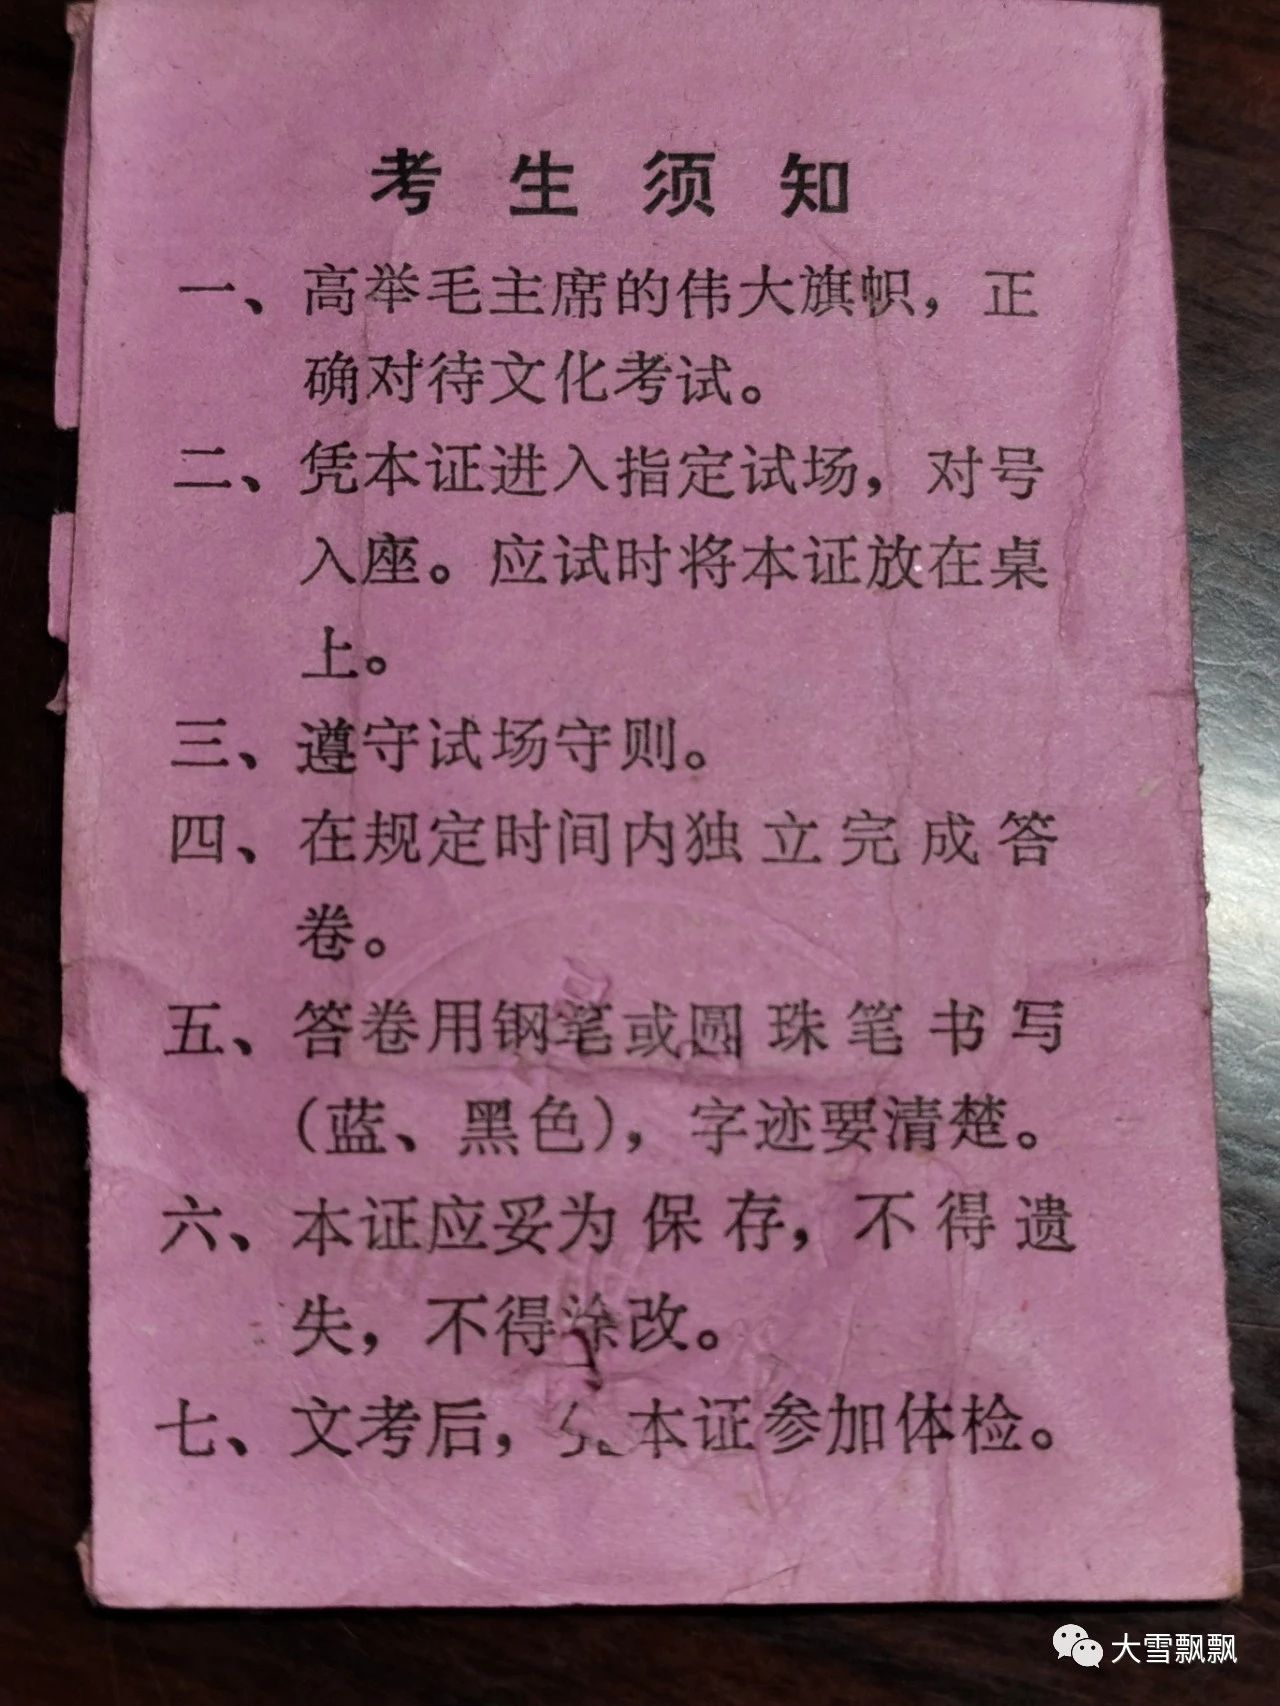 考生须知
一、高举毛主席的伟大旗帜，正
确对待文化考试。
二、凭本证进入指定试场，对号
入座。应试时将本证放在桌
上。
三、遵守试场守则。
四、在规定时间内独立完成答
卷。
五、答卷用钢笔或圆珠笔书写
（蓝、黑色），字迹要清楚。
六、本证应妥为保存，不得遗
失，不得涂改。
七、文考后，凭本证参加体检。
大雪飘飘